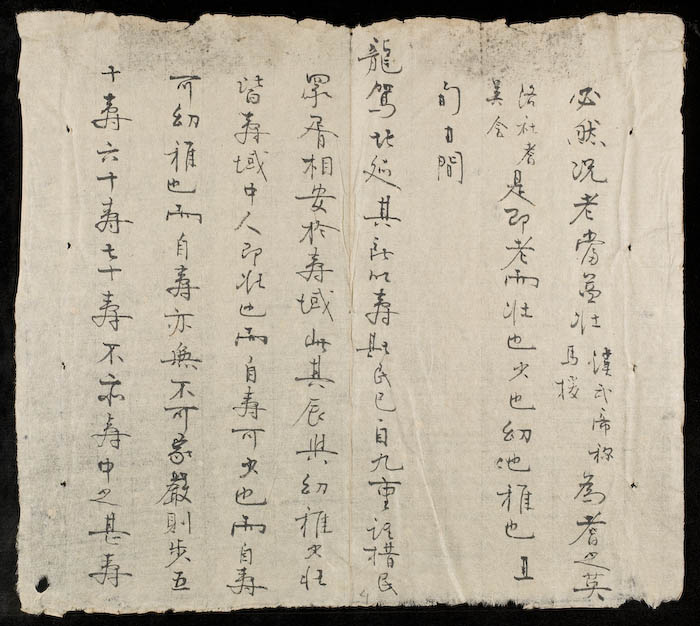 必然况老當益壯漢武帝称馬援為耆之英
洛社耆英会是即老而壯也少也幼也稚也且
的力間
龍駕北廵其所以壽斯民已自九重詔措民
眾胥相安於壽域此其辰與幼稚少壯
皆壽域中人即壯也而自壽可少也而自壽
可幼稚也而自壽亦無不可家嚴則步五
十壽六十壽七十壽不亦壽中之甚壽